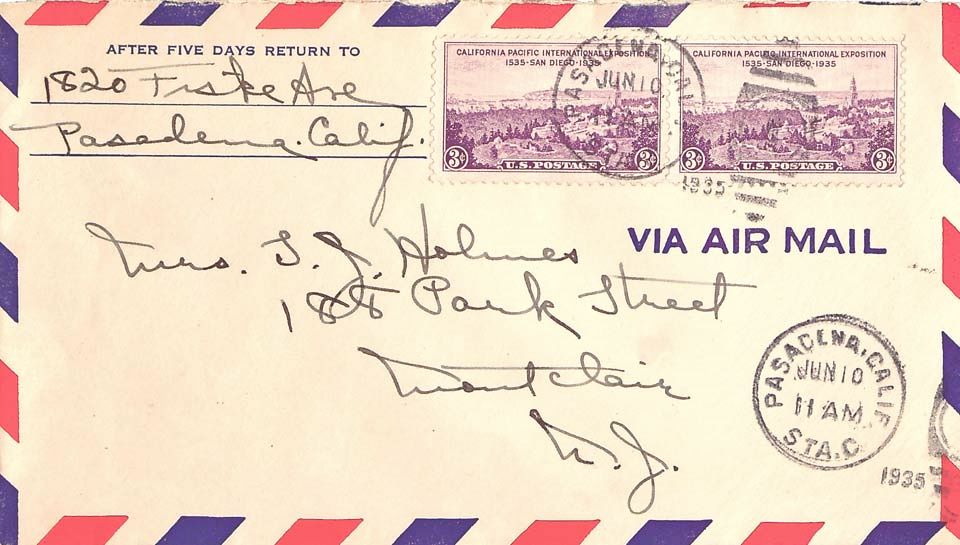 AFTER FIVE DAYS RETURN TO
1820 Fiske Ave
Pasadena. Calif.
CALIFORNIA PACIFIC INTERNATIONAL EXPOSITION
1535-SAN DIEGO-1935
3¢ U.S. POSTAGE 3¢
CALIFORNIA PACIFIC INTERNATIONAL EXPOSITION
1535-SAN DIEGO-1935
3¢ U.S. POSTAGE 3¢
PASADENA, CAL
JUN 10
STA.
1935
VIA AIR MAIL
Mrs. T. J. Holmes
188 Park Street
Montclair
N. J.
PASADENA, CALIF.
JUN 10
11 AM
STA. C.
1935